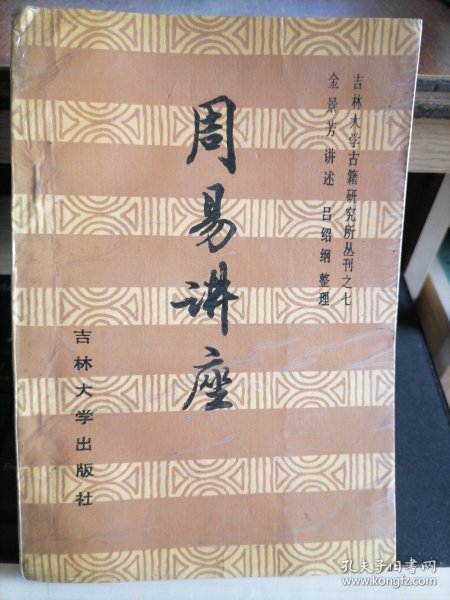 吉林大学古籍研究所丛刊之七
金景芳 讲述 吕绍纲 整理
周易讲座
吉林大学出版社
孔夫子旧书网
www.kongfz.com